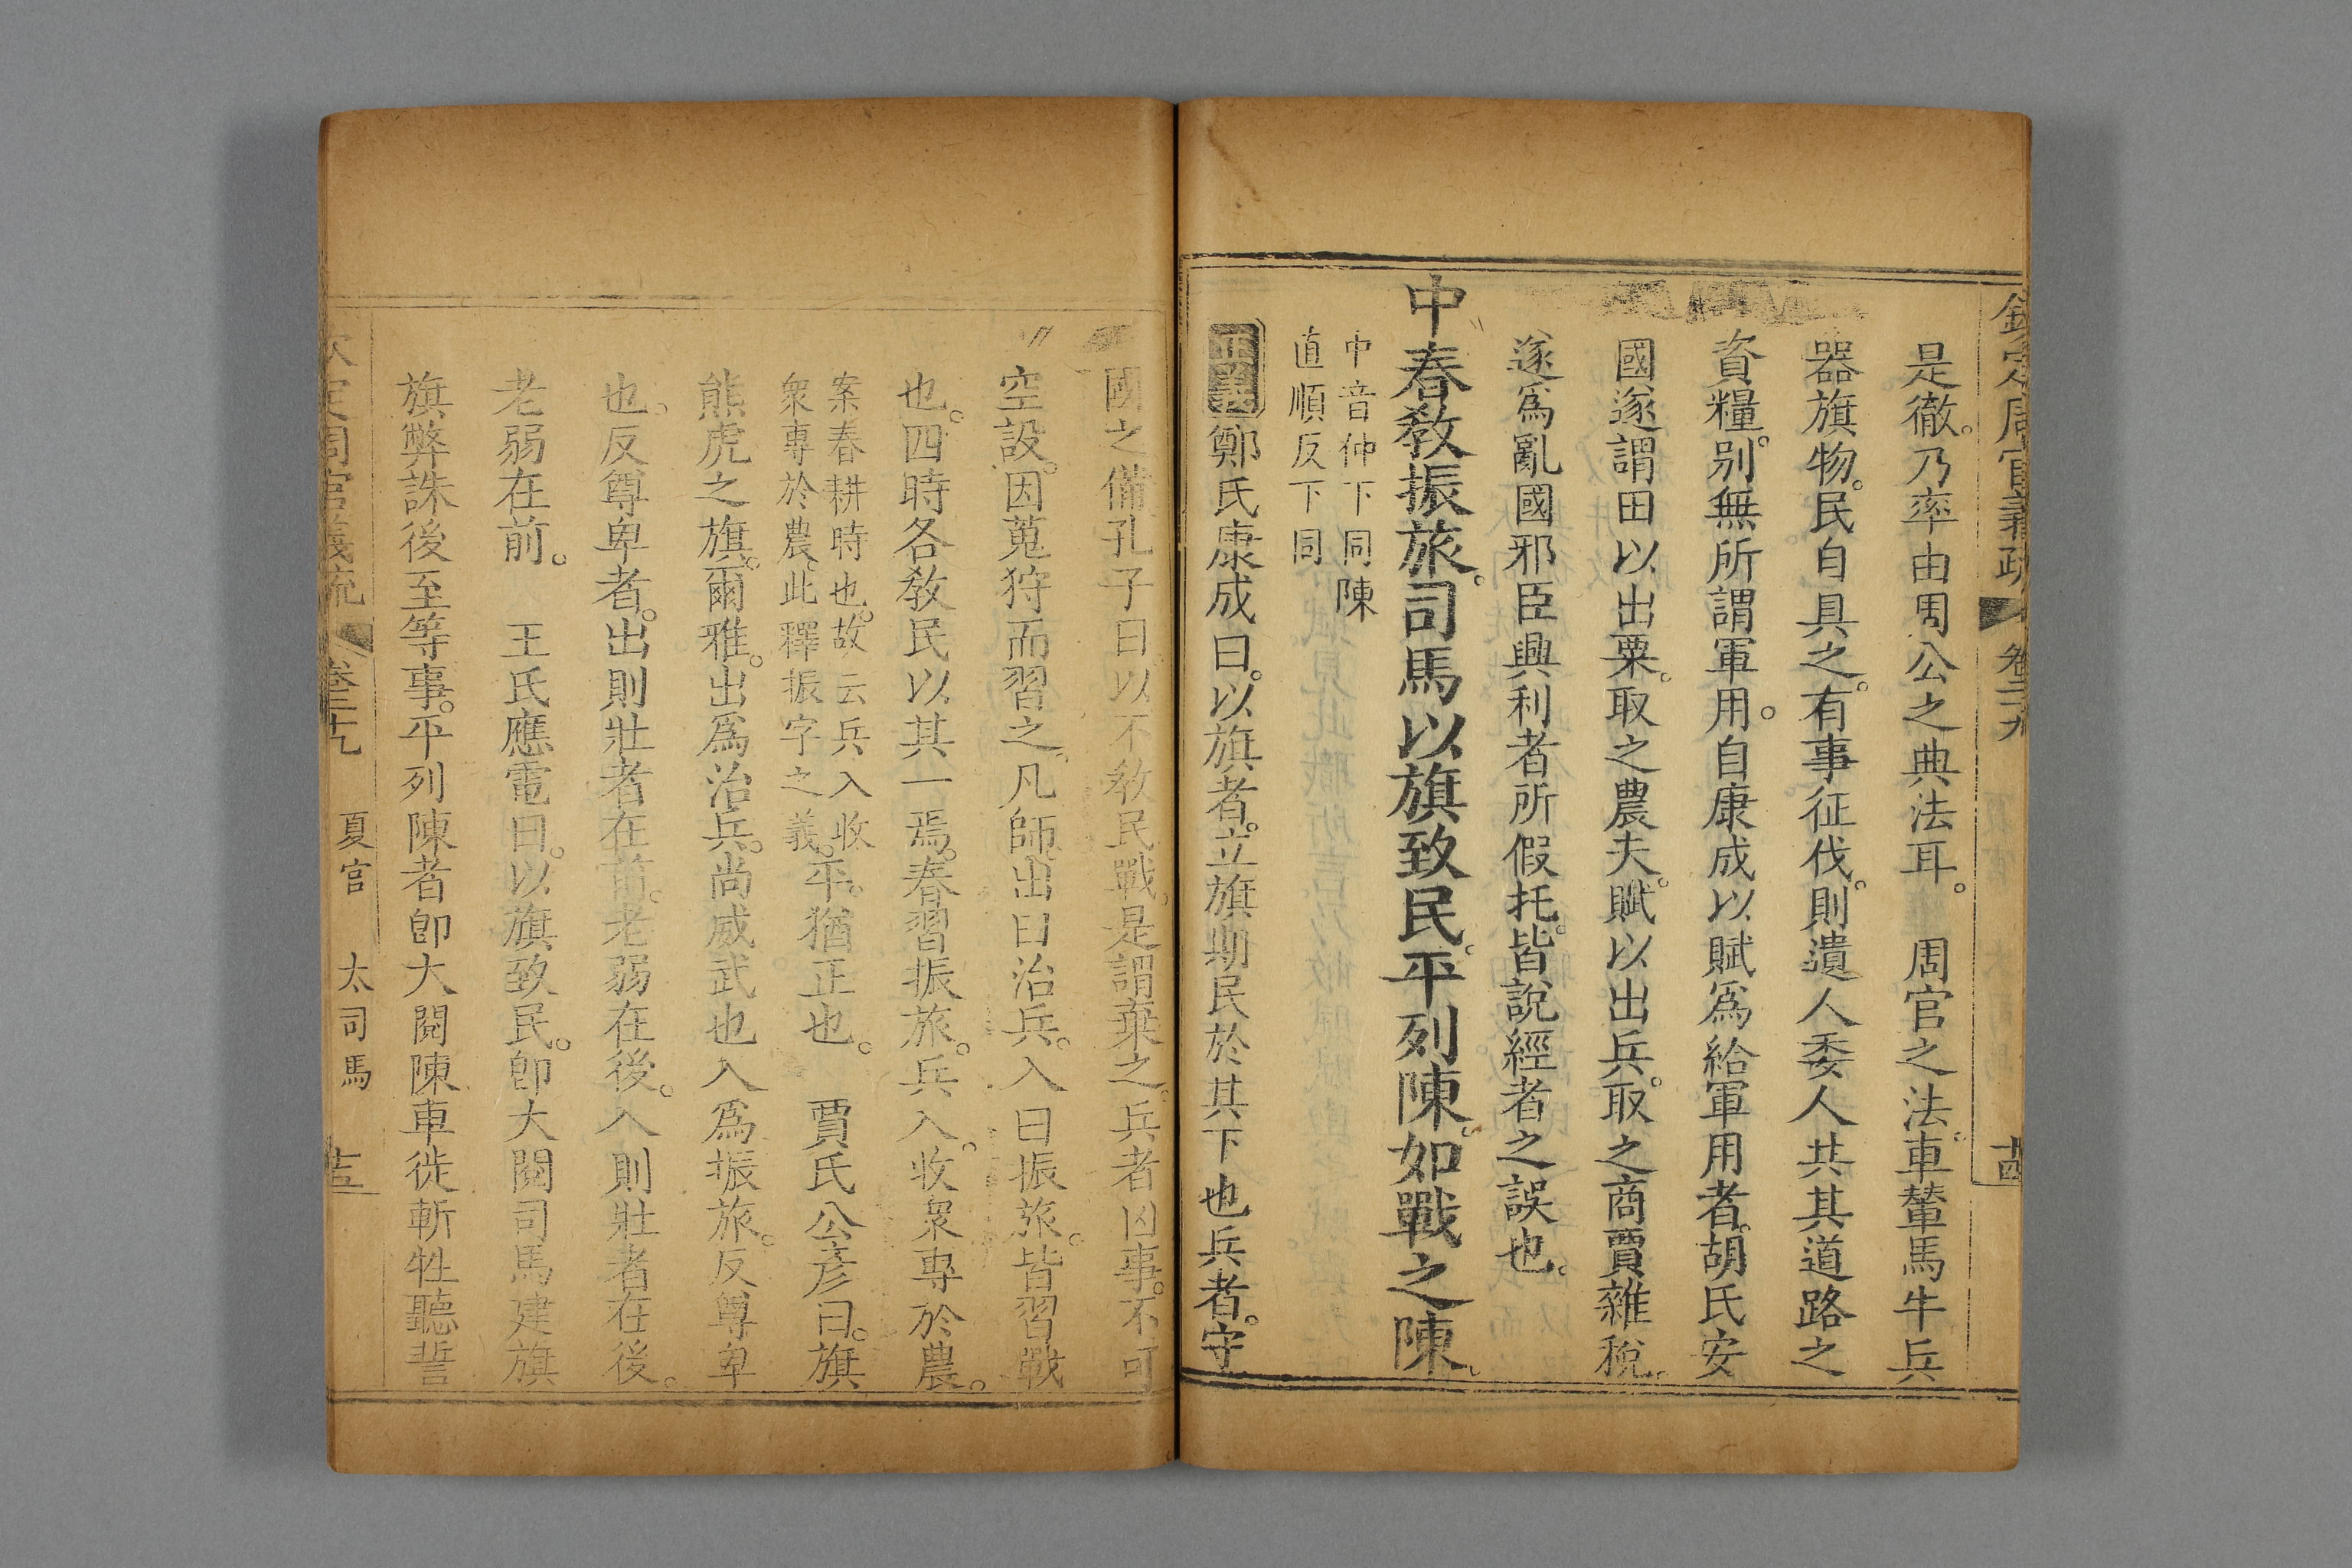 欽定周官義疏 卷二十九 十四
是徹。乃率由周公之典法耳。 周官之法。車輦馬牛兵
器旗物。民自具之。有事征伐。則遺人委人共其道路之
資糧。別無所謂軍用。自康成以賦爲給軍用者。胡氏安
國遂謂田以出粟。取之農夫。賦以出兵。取之商賈雜稅。
遂爲亂國邪臣興利者所假托。皆說經者之誤也。
中春教振旅。司馬以旗致民。平列陳。如戰之陳。
中音仲下同陳
直順反下同
正義 鄭氏康成曰。以旗者。立旗期民於其下也兵者。守
國之備孔子曰以不教民戰。是謂棄之。兵者凶事。不可
空設。因蒐狩而習之。凡師出曰治兵。入曰振旅。皆習戰
也。四時各教民以其一焉。春習振旅。兵入。收衆專於農。
案春耕時也。故云兵入收
衆專於農。此釋振字之義。
平。猶正也。 賈氏公彥曰。旗
熊虎之旗。爾雅。出爲治兵。尚威武也入爲振旅。反尊卑
也。反尊卑者。出則壯者在前。老弱在後。入則壯者在後。
老弱在前。 王氏應電曰。以旗致民。卽大閱司馬建旗
旗弊誅後至等事。平列陳者卽大閱陳車徙斬牲聽誓
欽定周官義疏 卷二十九 夏官 大司馬 十五